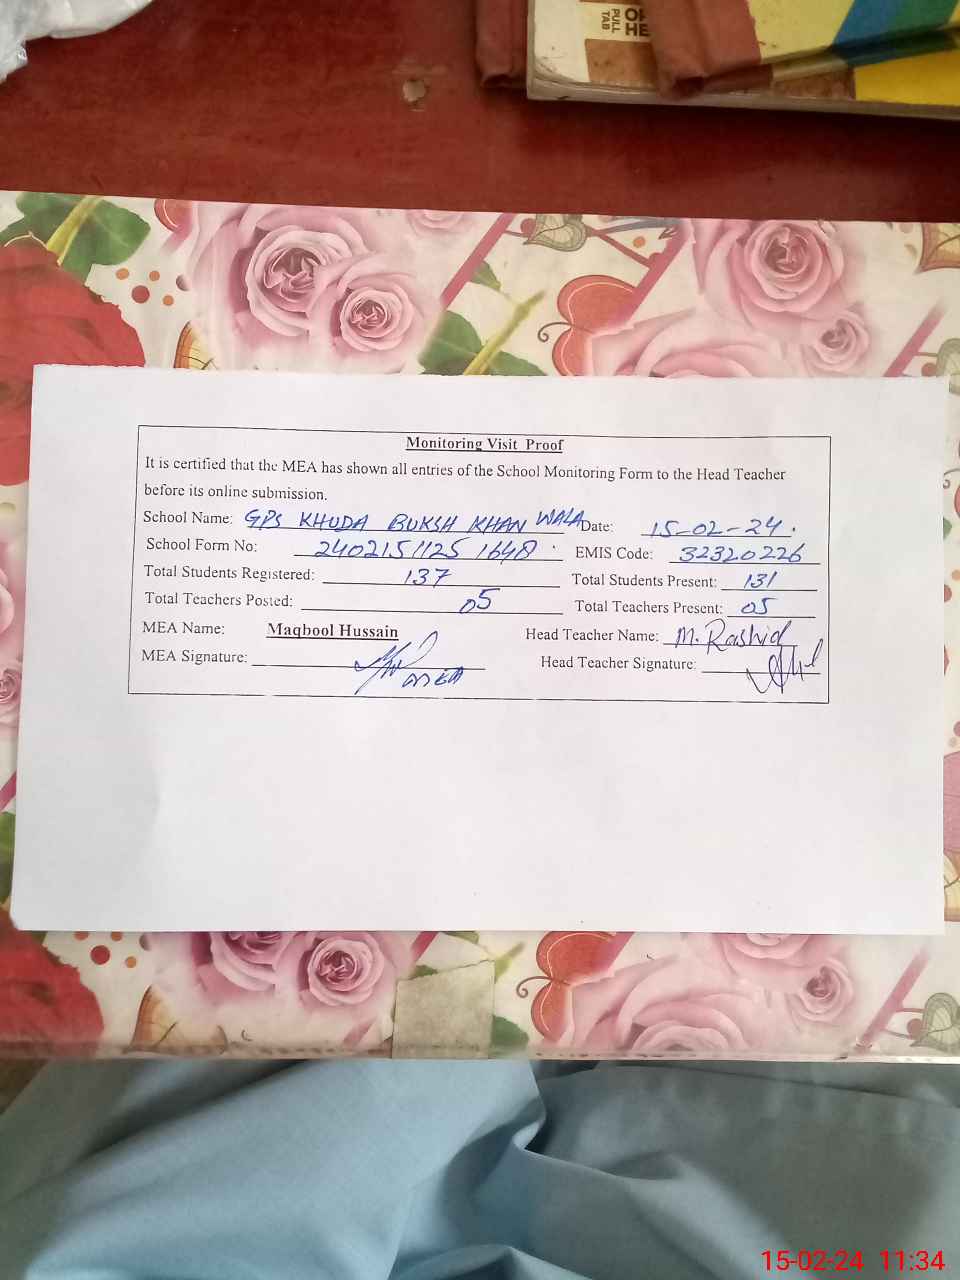 OP
PULL
HE
TAB
Monitoring Visit Proof
It is certified that the MEA has shown all entries of the School Monitoring Form to the Head Teacher
before its online submission.
School Name: GPS KHUDA BUKSH KHAN WALA Date: 15-02-24.
School Form No: 2402151125 1648. EMIS Code: 32320226
Total Students Registered: 137 Total Students Present: 131
Total Teachers Posted: 05 Total Teachers Present: 05
MEA Name: Maqbool Hussain Head Teacher Name: M. Rashid
MEA Signature: MEA Head Teacher Signature:
15-02-24 11:34